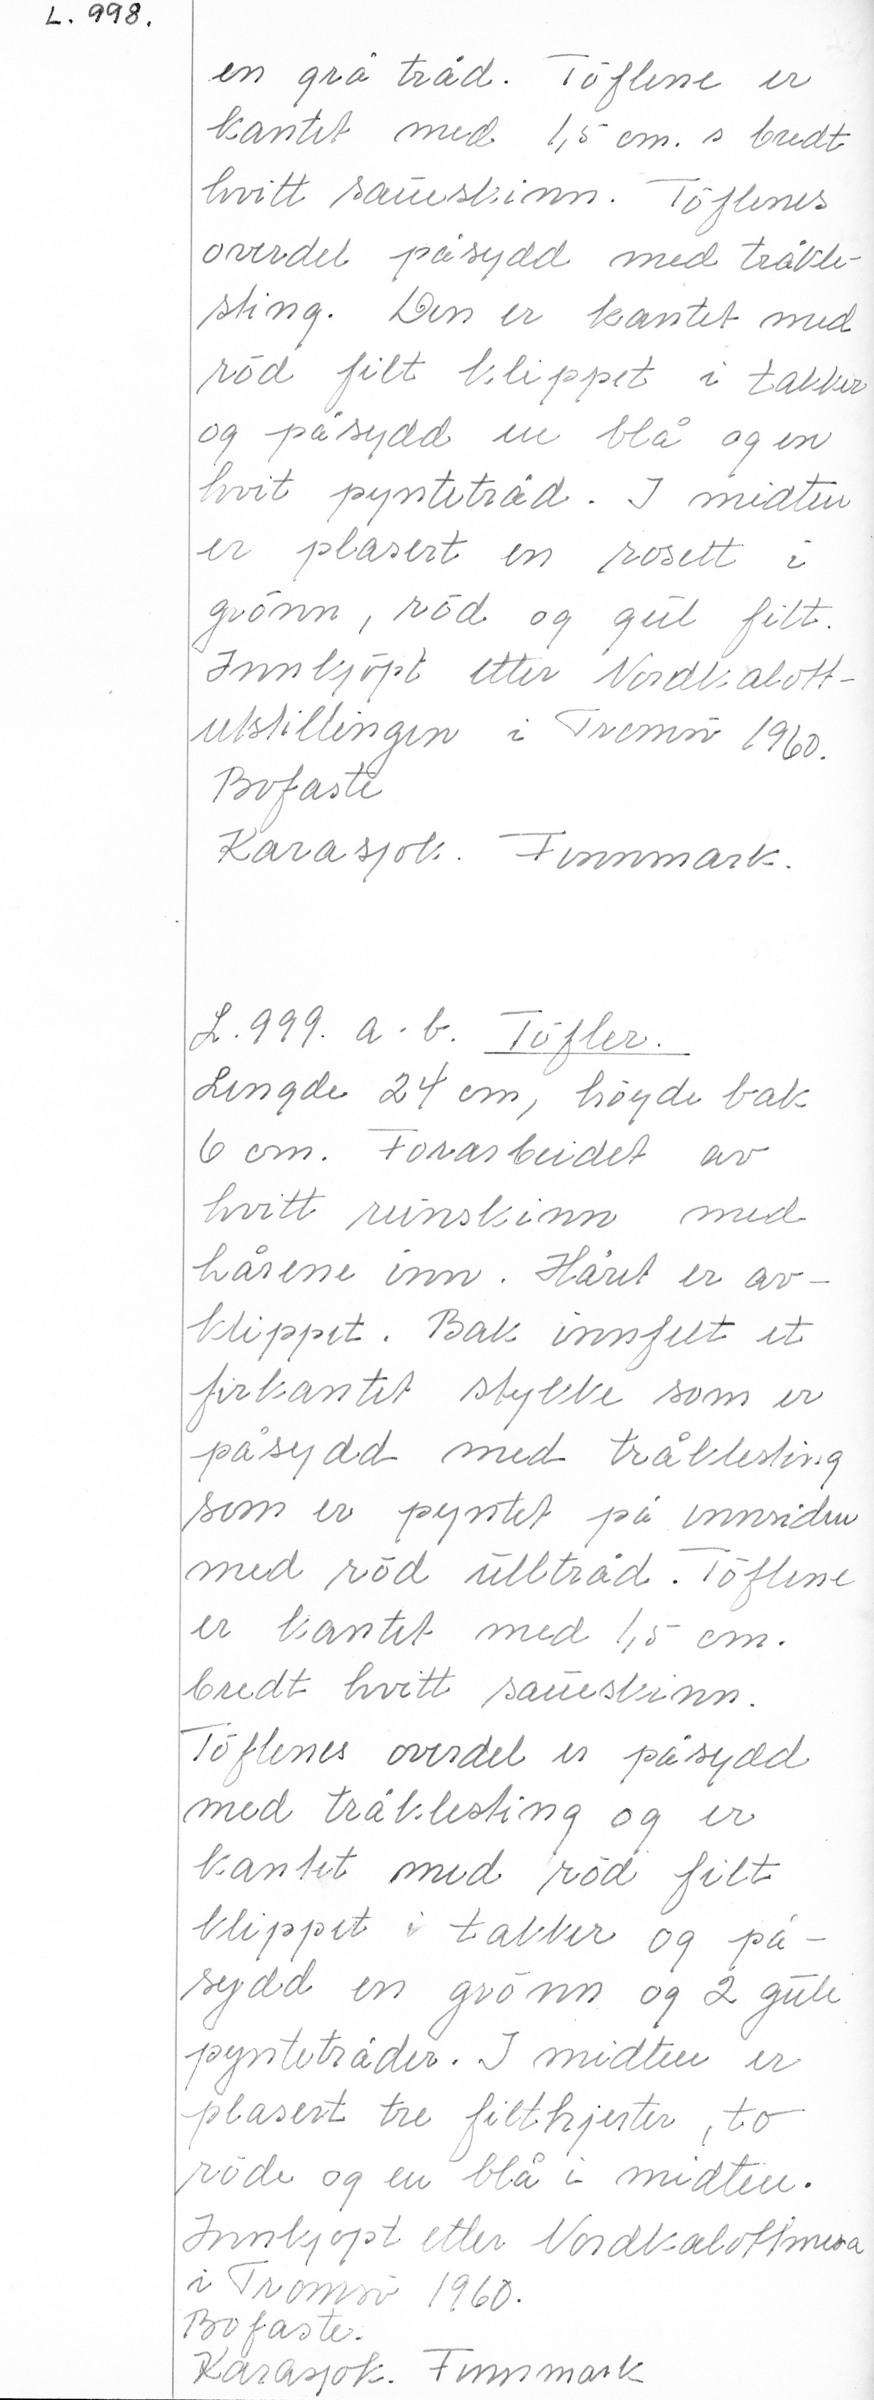 L. 998.
en grå tråd. Töflene er
kantet med 1,5 cm. s bredt
hvitt saueskinn. Töflenes
overdel påsydd med tråkle-
sting. Den er kantet med
röd filt klippet i takker
og påsydd en blå og en
hvit pyntetråd. I midten
er plasert en rosett i
grönn, röd og gul filt.
Innkjöpt etter Nordkalott-
utstillingen i Tromsö 1960.
Bofaste
Karasjok. Finnmark.
L. 999. a.b. Töfler.
Lengde 24 cm, höyde bak
6 cm. Forarbeidet av
hvitt reinskinn med
hårene inn. Håret er av-
klippet. Bak innfelt et
firkantet stykke som er
påsydd med tråklesting
som er pyntet på innsiden
med röd ulltråd. Töflene
er kantet med 1,5 cm.
bredt hvitt saueskinn.
Töflenes overdel er påsydd
med tråklesting og er
kantet med röd filt
klippet i takker og på-
sydd en grönn og 2 gule
pyntetråder. I midten er
plasert tre filthjerter, to
röde og en blå i midten.
Innkjopt etter Nordkalottmessa
i Tromsö 1960.
Bofaste.
Karasjok. Finnmark